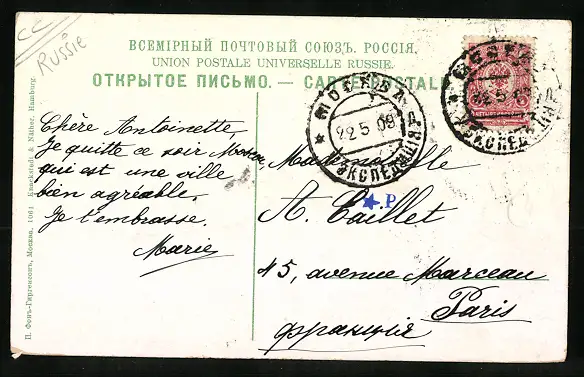 CC
Russie
ВСЕМІРНЫЙ ПОЧТОВЫЙ СОЮЗЪ. РОССІЯ.
UNION POSTALE UNIVERSELLE RUSSIE.
ОТКРЫТОЕ ПИСЬМО. — CARTE POSTALE
МОСКВА
22 5 09
ЭКСПЕД
22 5 09
ЭКСПЕД
Chère Antoinette,
Je quitte ce soir Moscou,
qui est une ville
bien agréable.
Je t'embrasse.
Marie
Mademoiselle
A. Caillet
P
45, avenue Marceau
Paris
Франція
П. Фонъ-Гиргенсонъ, Москва. 1061 Knackstedt & Näther, Hamburg.